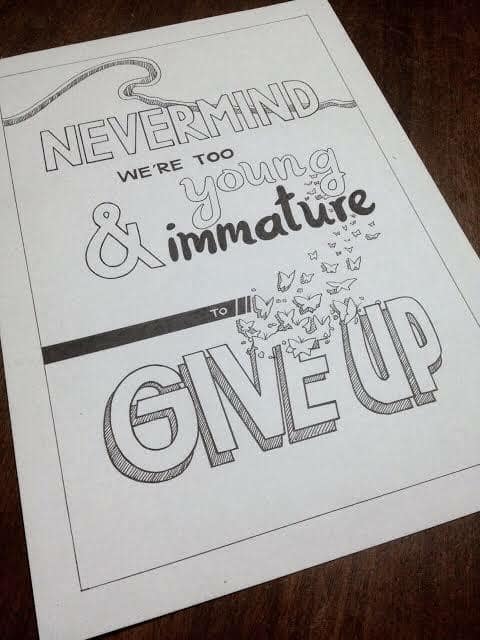 NEVERMIND
WE'RE TOO
young
& immature
TO
GIVE UP